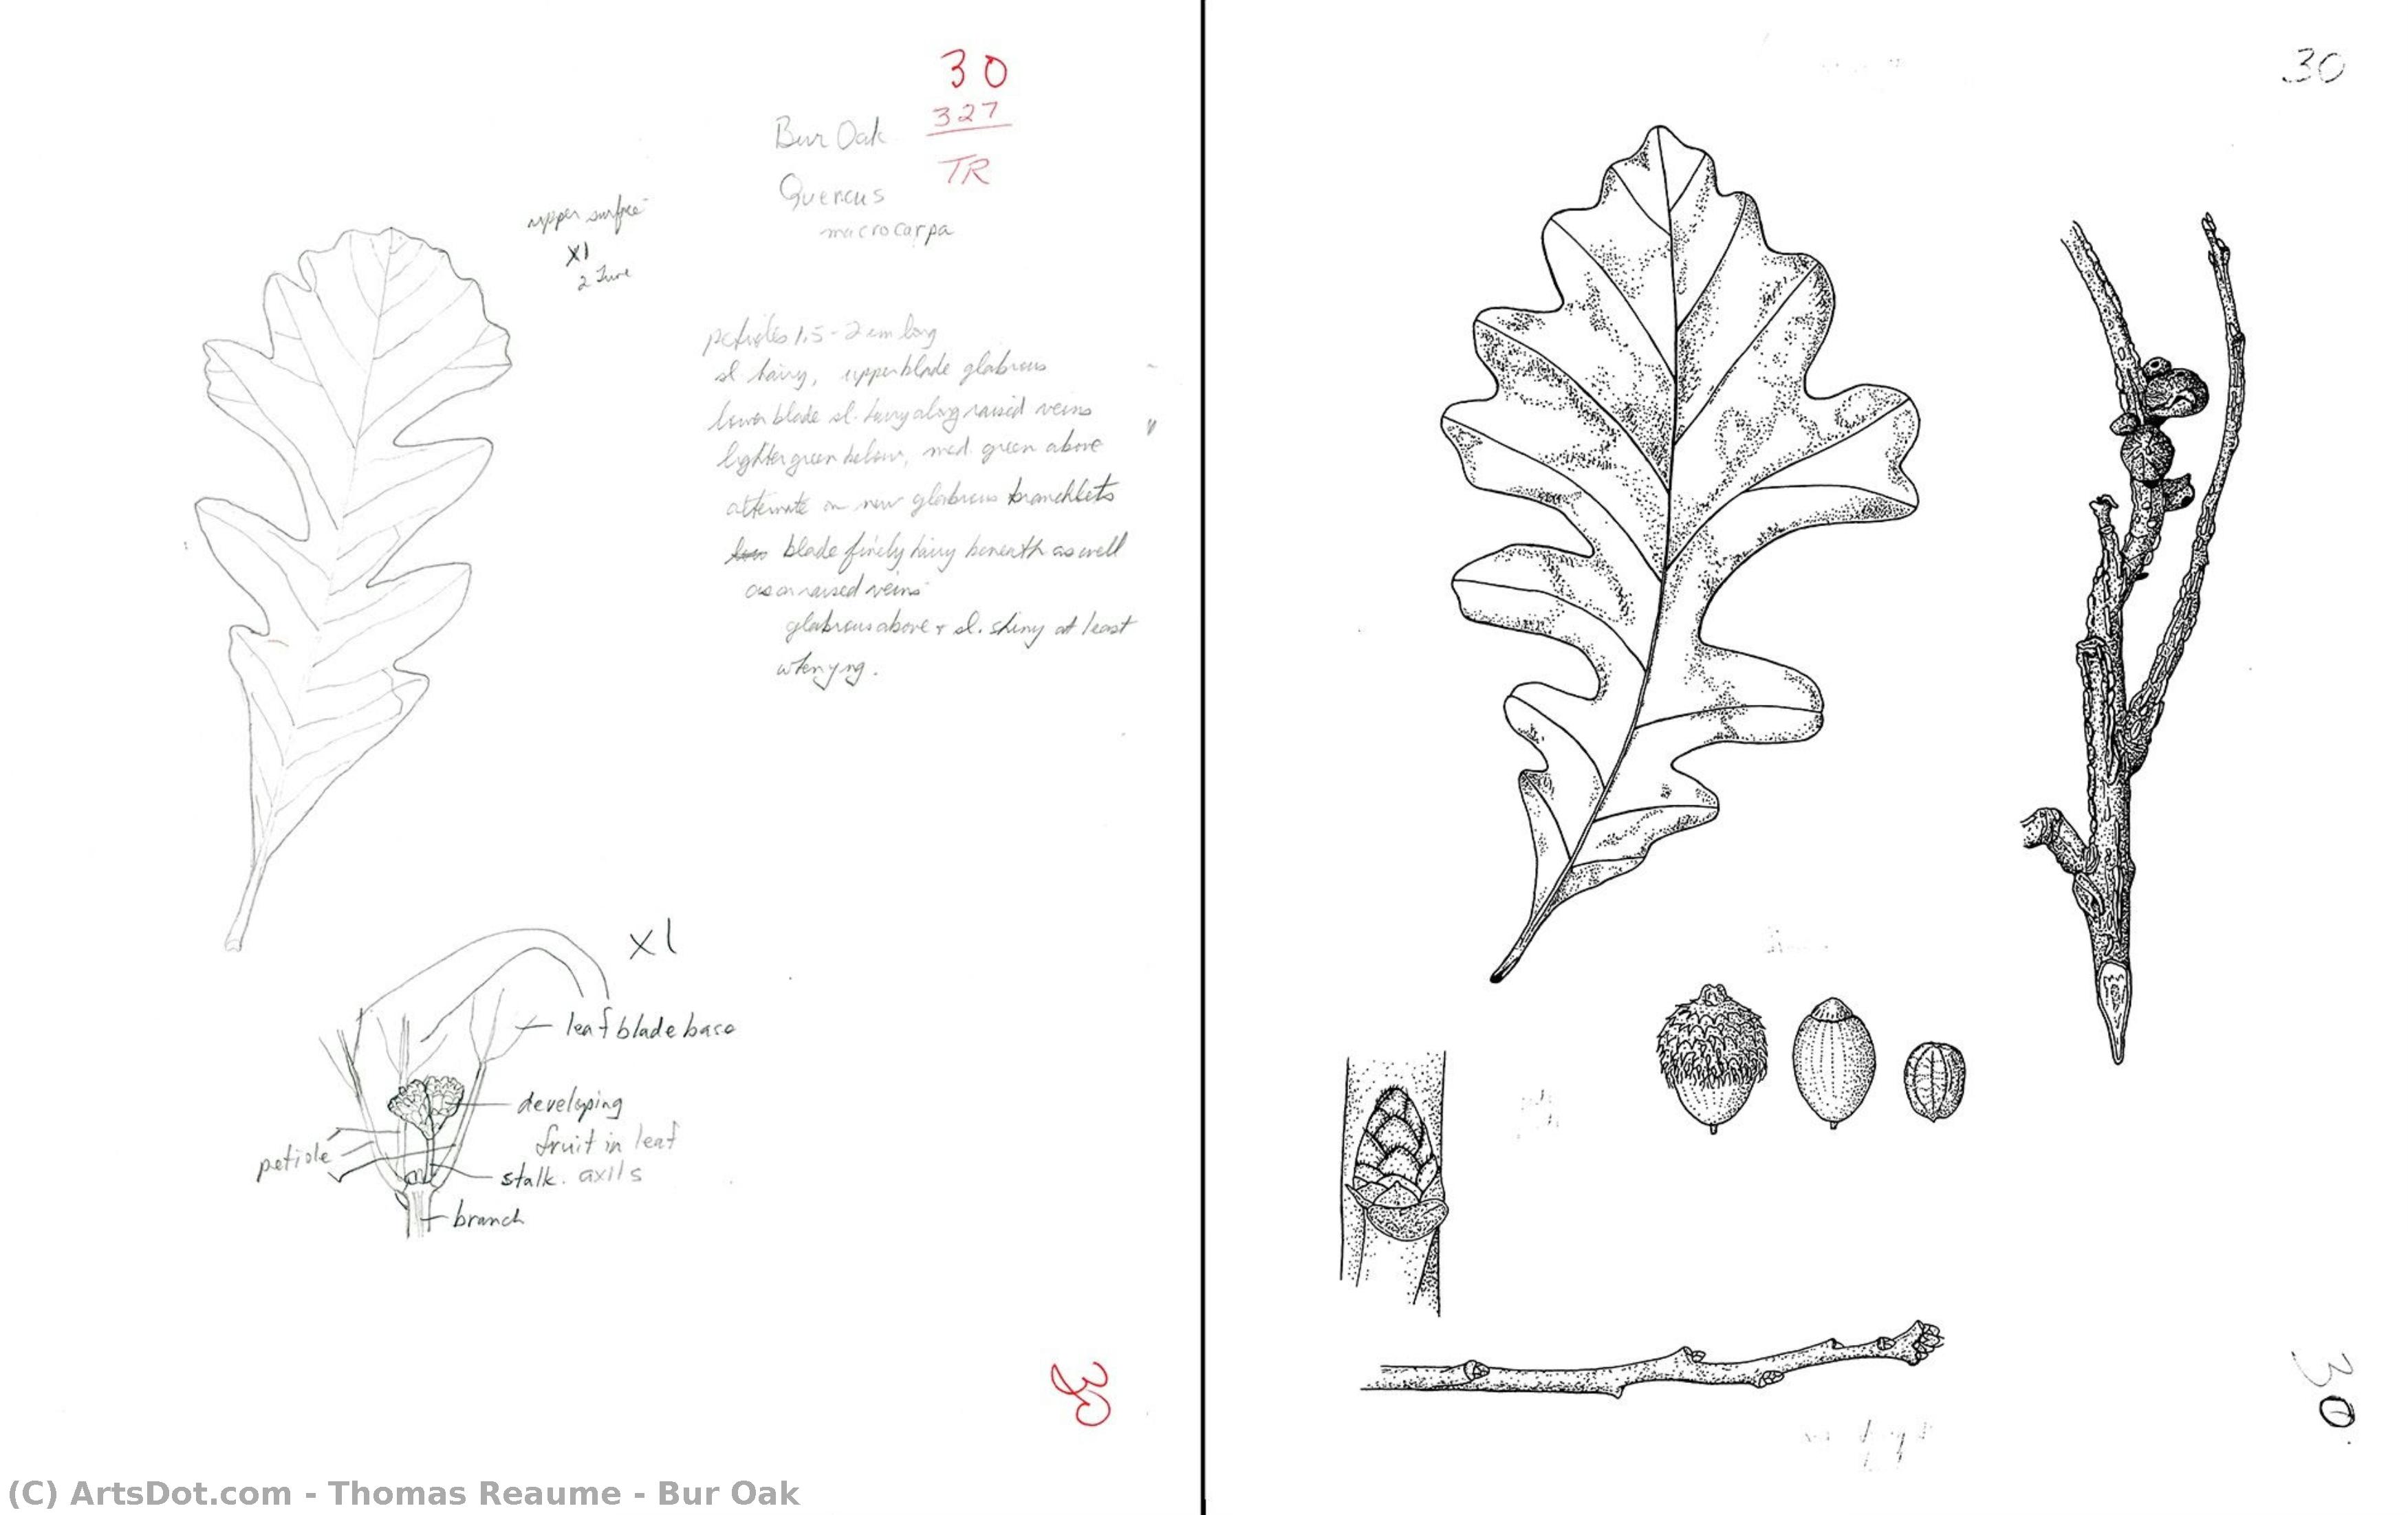 30
327
TR
Bur Oak
Quercus
macrocarpa
upper surface
X1
2 June
petioles 1.5-2 cm long
sl. hairy, upper blade glabrous
lower blade sl. hairy along raised veins
lighter green below, med. green above
alternate on new glabrous branchlets
blade finely hairy beneath as well
as on raised veins
glabrous above + sl. shiny at least
when yng.
x1
leaf blade base
developing
fruit in leaf
axils
petiole
stalk.
branch
30
30
30
(C) ArtsDot.com - Thomas Reaume - Bur Oak